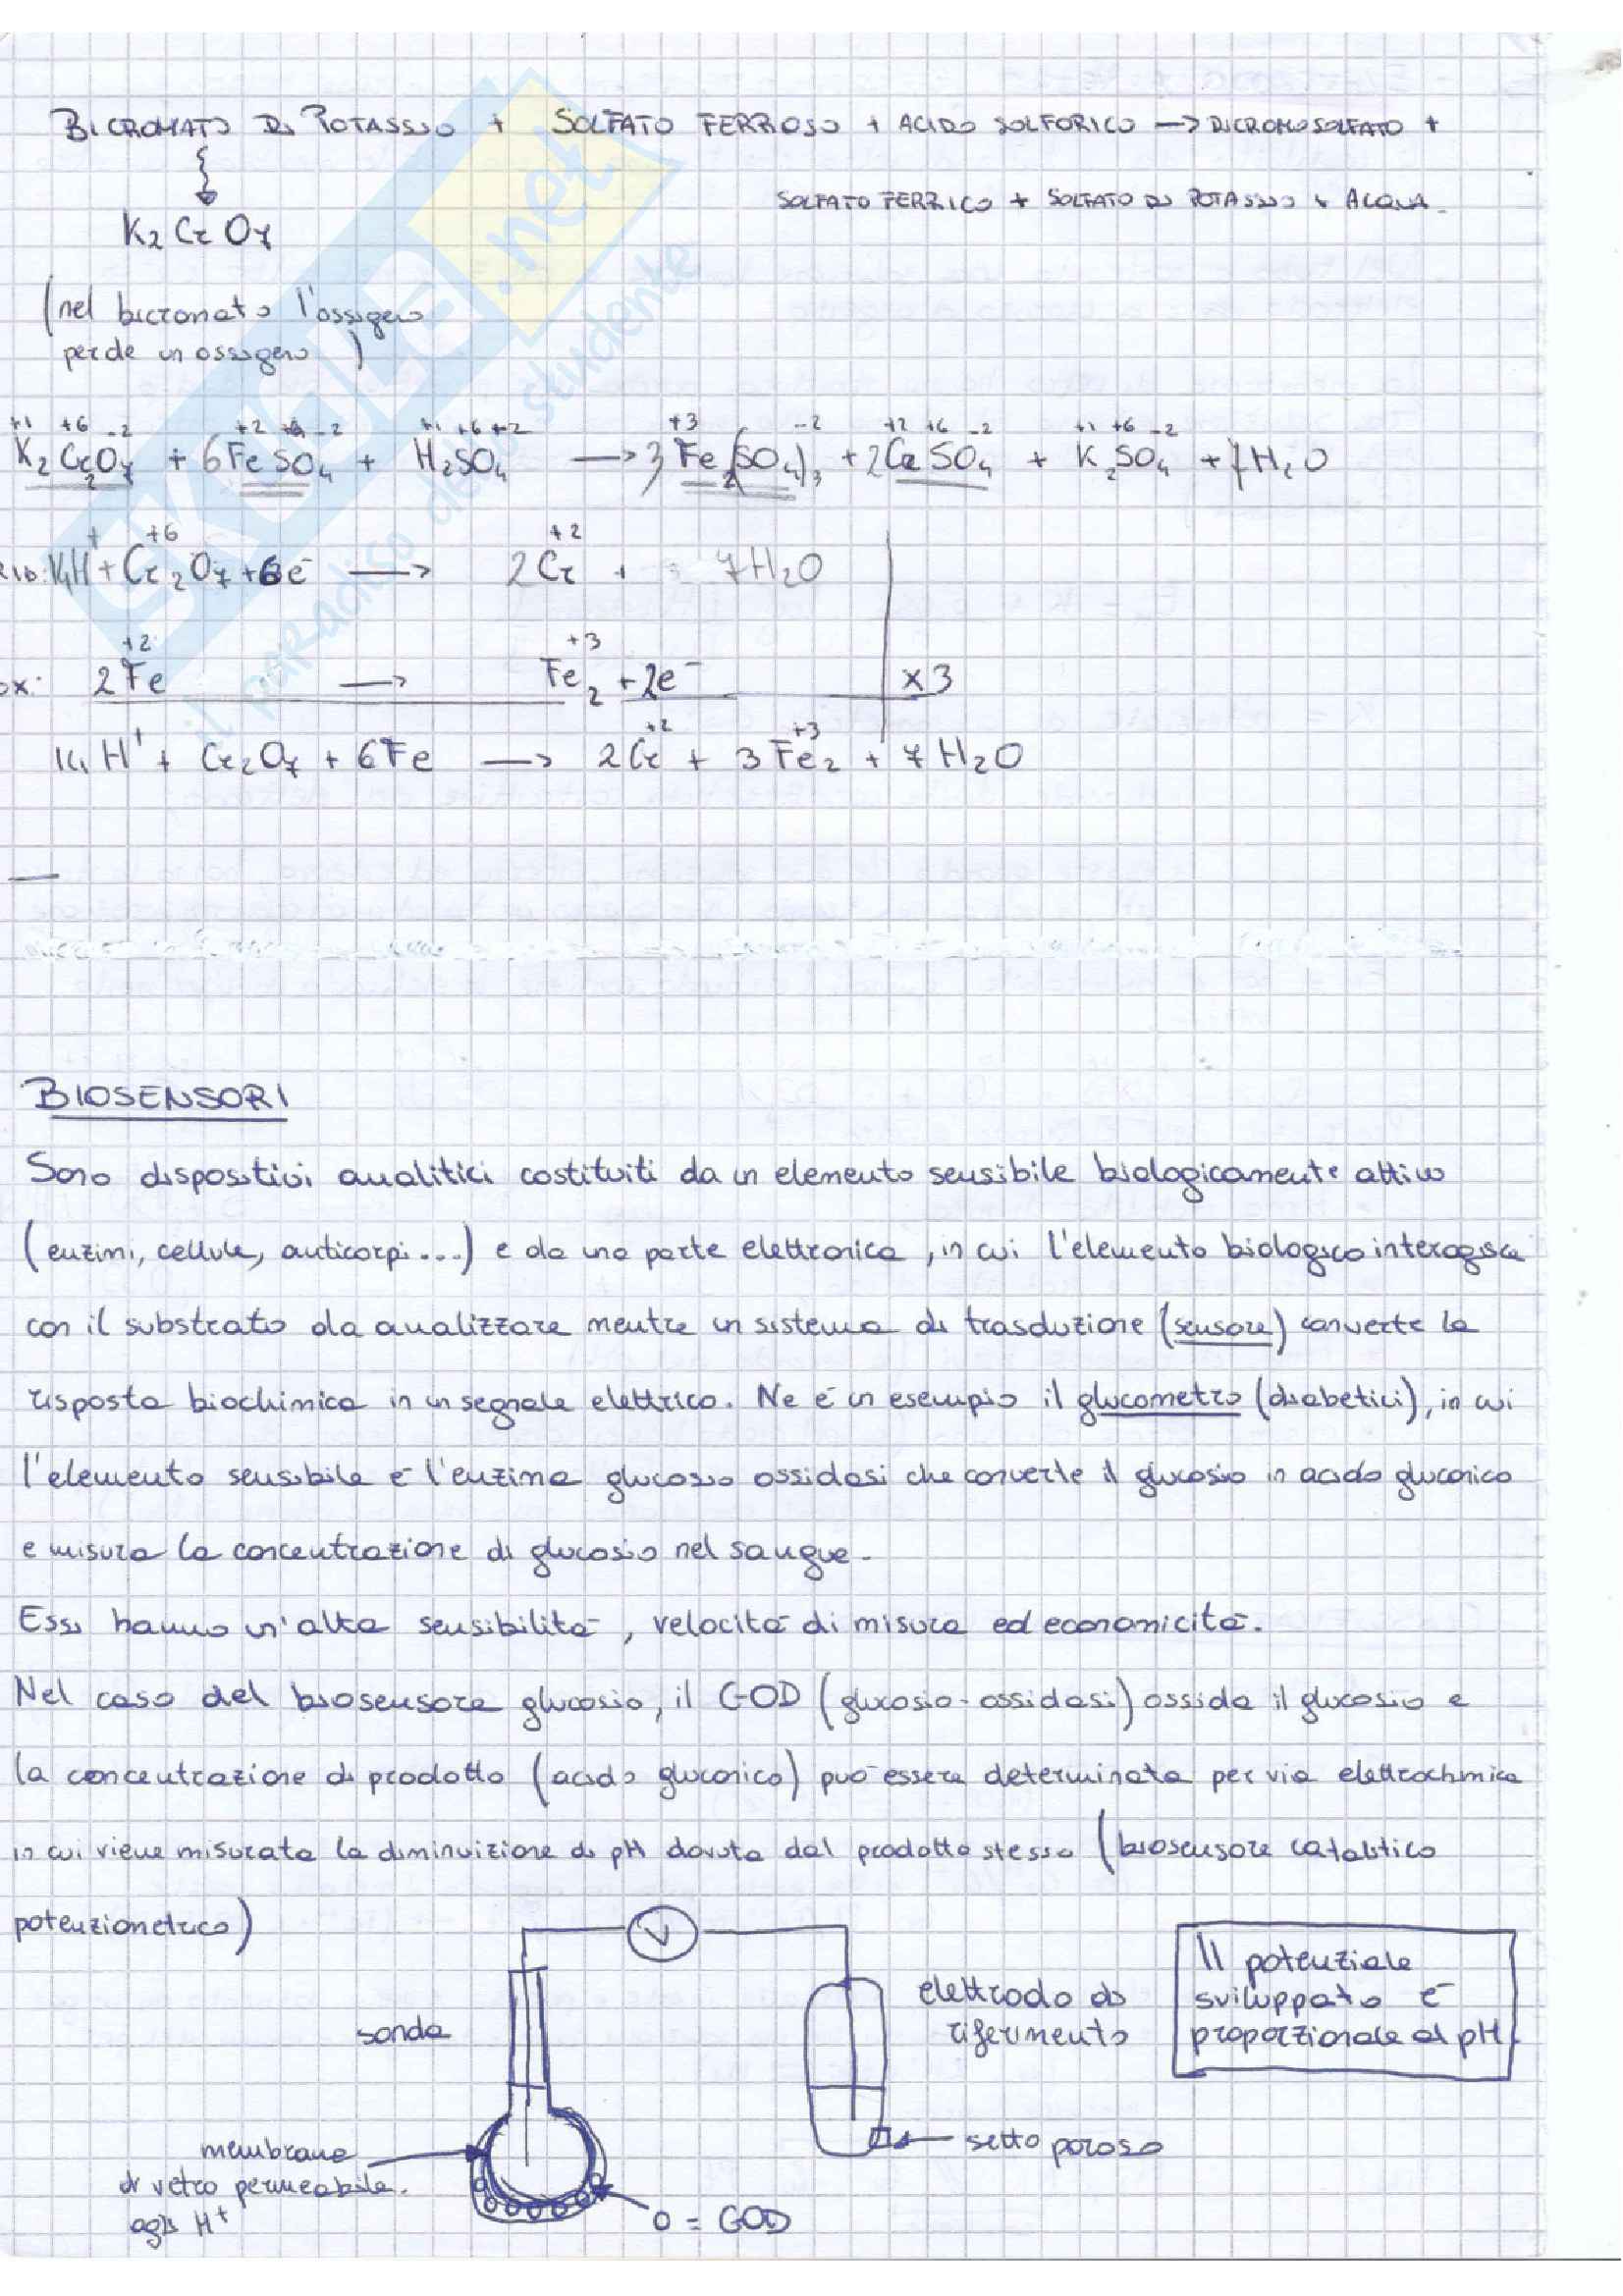 BICROMATO DI POTASSIO + SOLFATO FERROSO + ACIDO SOLFORICO → DICROMOSOLFATO +
SOLFATO FERRICO + SOLFATO DI POTASSIO + ACQUA.
K2 Cr O7
(nel bicromato l'ossigeno
perde un ossigeno )
+1 +6 -2 +2 +6 -2 +1 +6 -2 +3 -2 +2 +6 -2 +1 +6 -2
K2Cr2O7 + 6FeSO4 + H2SO4 → 3Fe2(SO4)3 + 2CrSO4 + K2SO4 + 7H2O
RID: 14H+ + Cr2+6O7 + 6e- → 2Cr+2 + 7H2O
OX: 2Fe+2 → Fe2+3 + 2e- x3
14H+ + Cr2O7 + 6Fe → 2Cr+2 + 3Fe2+3 + 7H2O
BIOSENSORI
Sono dispositivi analitici costituiti da un elemento sensibile biologicamente attivo
(enzimi, cellule, anticorpi...) e da una parte elettronica, in cui l'elemento biologico interagisce
con il substrato da analizzare mentre un sistema di trasduzione (sensore) converte la
risposta biochimica in un segnale elettrico. Ne è un esempio il glucometro (diabetici), in cui
l'elemento sensibile è l'enzima glucosio ossidasi che converte il glucosio in acido gluconico
e misura la concentrazione di glucosio nel sangue.
Essi hanno un'alta sensibilità, velocità di misura ed economicità.
Nel caso del biosensore glucosio, il GOD (glucosio-ossidasi) ossida il glucosio e
la concentrazione di prodotto (acido gluconico) può essere determinata per via elettrochimica
in cui viene misurata la diminuizione di pH dovuta dal prodotto stesso (biosensore catalitico
potenziometrico)
V
sonda
elettrodo di
riferimento
Il potenziale
sviluppato è
proporzionale al pH
membrana
di vetro permeabile
agli H+
setto poroso
o = GOD
SKUOLA.net
il paradiso dello studente